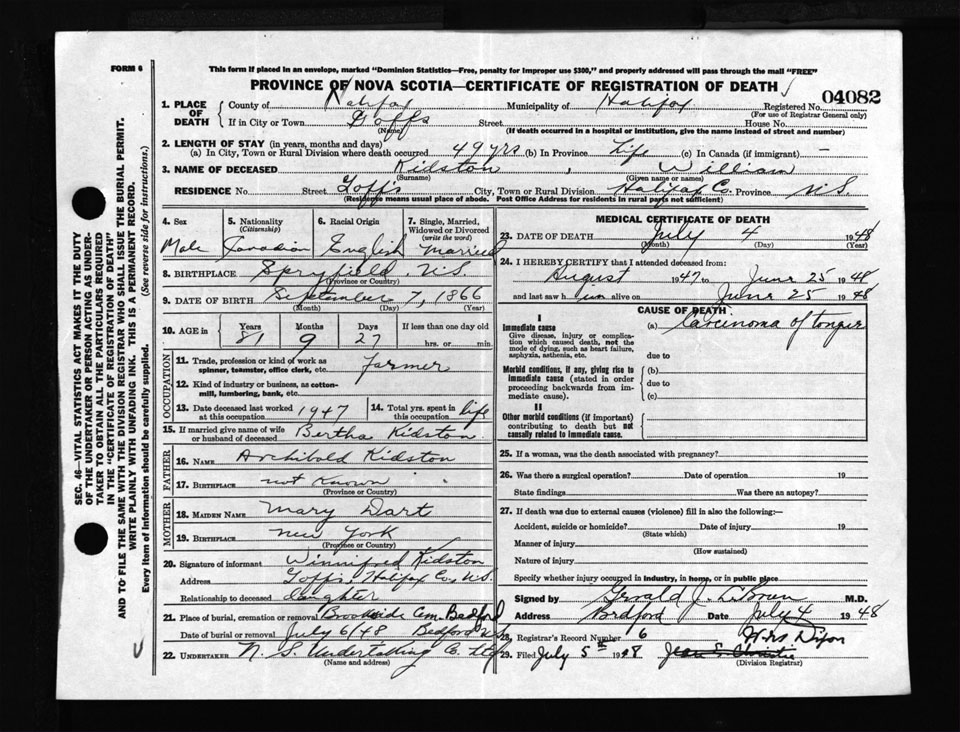 FORM 6
This form if placed in an envelope, marked "Dominion Statistics—Free, penalty for improper use $300," and properly addressed will pass through the mail "FREE"
PROVINCE OF NOVA SCOTIA—CERTIFICATE OF REGISTRATION OF DEATH
04082
1. PLACE OF DEATH
County of Halifax Municipality of Halifax Registered No.
(For use of Registrar General only)
If in City or Town Goffs Street House No.
(Name) (If death occurred in a hospital or institution, give the name instead of street and number)
2. LENGTH OF STAY (in years, months and days)
(a) In City, Town or Rural Division where death occurred 49 yrs (b) In Province Life (c) In Canada (if immigrant) —
3. NAME OF DECEASED Kidston , William
(Surname) (Given name or names)
RESIDENCE No. Street Goffs City, Town or Rural Division Halifax Co. Province N.S.
(Residence means usual place of abode. Post Office Address for residents in rural parts not sufficient)
4. Sex 5. Nationality (Citizenship) 6. Racial Origin 7. Single, Married, Widowed or Divorced (write the word)
Male Canadian English Married
8. BIRTHPLACE Spryfield, N.S.
(Province or Country)
9. DATE OF BIRTH September 7, 1866
(Month) (Day) (Year)
10. AGE in Years Months Days If less than one day old
81 9 27 hrs. or min.
OCCUPATION
11. Trade, profession or kind of work as spinner, teamster, office clerk, etc. Farmer
12. Kind of industry or business, as cotton-mill, lumbering, bank, etc.
13. Date deceased last worked at this occupation 1947 14. Total yrs. spent in this occupation life
15. If married give name of wife or husband of deceased Bertha Kidston
FATHER
16. NAME Archibald Kidston
17. BIRTHPLACE not known
(Province or Country)
MOTHER
18. MAIDEN NAME Mary Dart
19. BIRTHPLACE New York
(Province or Country)
20. Signature of informant Winnifred Kidston
Address Goffs, Halifax Co., N.S.
Relationship to deceased daughter
21. Place of burial, cremation or removal Brookside Cem. Bedford
Date of burial or removal July 6/48 Bedford N.S.
22. UNDERTAKER N. S. Undertaking Co. Ltd
(Name and address)
MEDICAL CERTIFICATE OF DEATH
23. DATE OF DEATH July 4 1948
(Month) (Day) (Year)
24. I HEREBY CERTIFY that I attended deceased from:
August 1947 to June 25 1948
and last saw him alive on June 25 1948
CAUSE OF DEATH
I
Immediate cause (a) Carcinoma of tongue
Give disease, injury or complication which caused death, not the mode of dying, such as heart failure, asphyxia, asthenia, etc.
due to
Morbid conditions, if any, giving rise to immediate cause (stated in order proceeding backwards from immediate cause).
(b)
due to
(c)
II
Other morbid conditions (if important) contributing to death but not causally related to immediate cause.
25. If a woman, was the death associated with pregnancy?
26. Was there a surgical operation? Date of operation 19
State findings Was there an autopsy?
27. If death was due to external causes (violence) fill in also the following:—
Accident, suicide or homicide? Date of injury 19
(State which)
Manner of injury
(How sustained)
Nature of injury
Specify whether injury occurred in industry, in home, or in public place
Signed by Gerald J. O'Brien M.D.
Address Bedford Date July 4 1948
28. Registrar's Record Number 6
29. Filed July 5th 1948 Jean S. Christie
Dixon
(Division Registrar)
SEC. 46—VITAL STATISTICS ACT MAKES IT THE DUTY
OF THE UNDERTAKER OR PERSON ACTING AS UNDERTAKER TO OBTAIN ALL THE PARTICULARS REQUIRED
IN THE "CERTIFICATE OF REGISTRATION OF DEATH"
AND TO FILE THE SAME WITH THE DIVISION REGISTRAR WHO SHALL ISSUE THE BURIAL PERMIT.
WRITE PLAINLY WITH UNFADING INK. THIS IS A PERMANENT RECORD.
Every item of information should be carefully supplied. (See reverse side for instructions.)